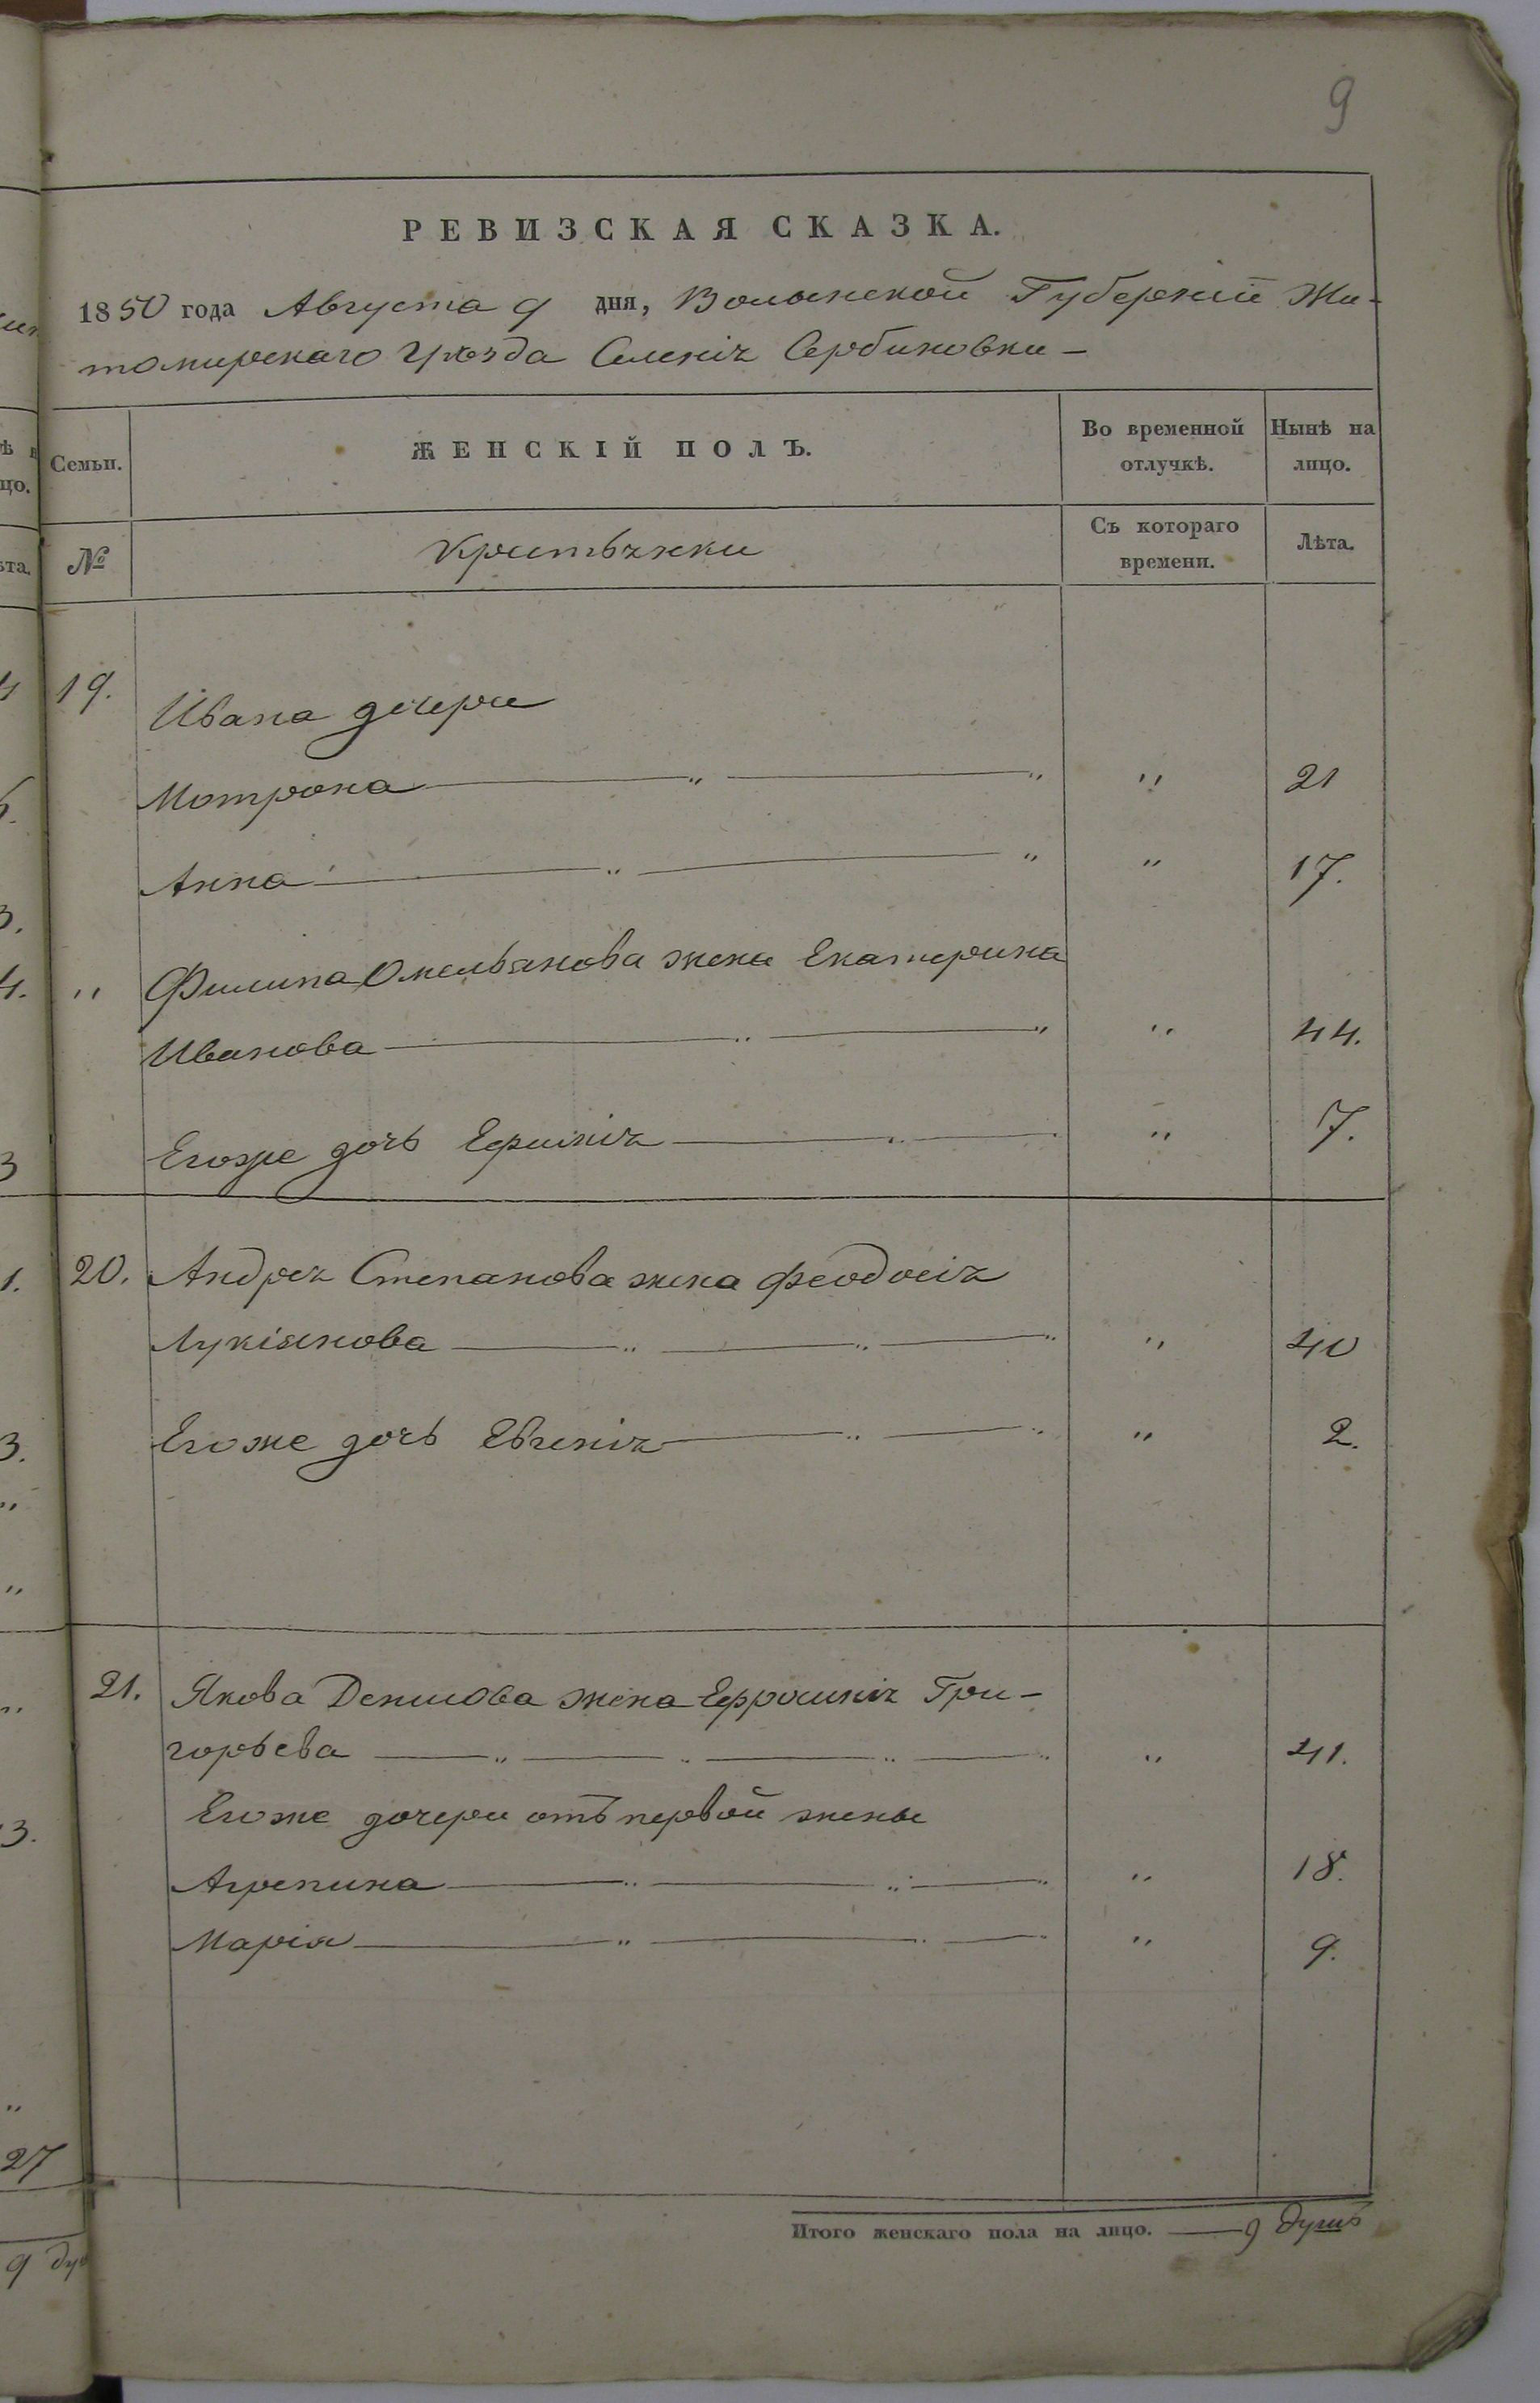 9
РЕВИЗСКАЯ СКАЗКА.
1850 года Августа 9 дня, Волынской Губерніи Жи-
томирскаго Уѣзда Селенія Сербиновки –
Семьи.
ЖЕНСКІЙ ПОЛЪ.
Во временной отлучкѣ.
Нынѣ на лицо.
№
Крестьянки
Съ котораго времени.
Лѣта.
19. Ивана дочери
Мотрона — " — " " 21
Анна — " — " " 17.
" Филипа Омельянова жена Екатерина
Иванова — " — " " 44.
Егоже дочь — " — " 7.
20. Андрея Степанова жена Феодосія
Лукіянова — " — " — " " 40
Егоже дочь Евгенія — " — " " 2.
21. Якова Денисова жена Ефросинія Гри-
горьева — " — " — " — " " 41.
Егоже дочери отъ первой жены
Агрепина — " — " — " " 18.
Марія — " — " — " " 9.
Итого женскаго пола на лицо. — 9 душъ